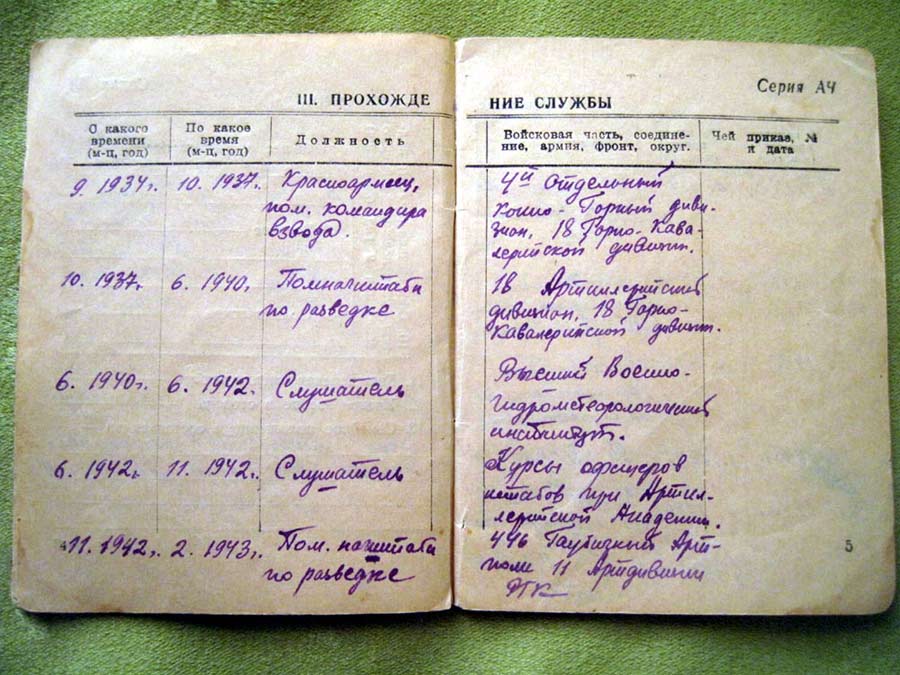 Серия АЧ
III. ПРОХОЖДЕ
НИЕ СЛУЖБЫ
С какого времени (м-ц, год)
По какое время (м-ц, год)
Должность
Войсковая часть, соединение, армия, фронт, округ.
Чей приказ, № и дата
9. 1934г.
10. 1937г.
Красноармеец,
пом. командира
взвода.
4й Отдельный
Конно-Горный диви-
зион, 18 Горно-Кава-
лерийской дивизии.
10. 1937г.
6. 1940г.
Помначштаба
по разведке
18 Артиллерийский
дивизион, 18 Горно-
Кавалерийской дивизии.
6. 1940г.
6. 1942г.
Слушатель
Высший Военно-
гидрометеорологический
институт.
6. 1942г.
11. 1942г.
Слушатель
Курсы офицеров
штабов при Артил-
лерийской Академии.
4
11. 1942г.
2. 1943г.
Пом. начштаба
по разведке
446 Гаубичный Арт-
полк 11 Артдивизии
РГК
5